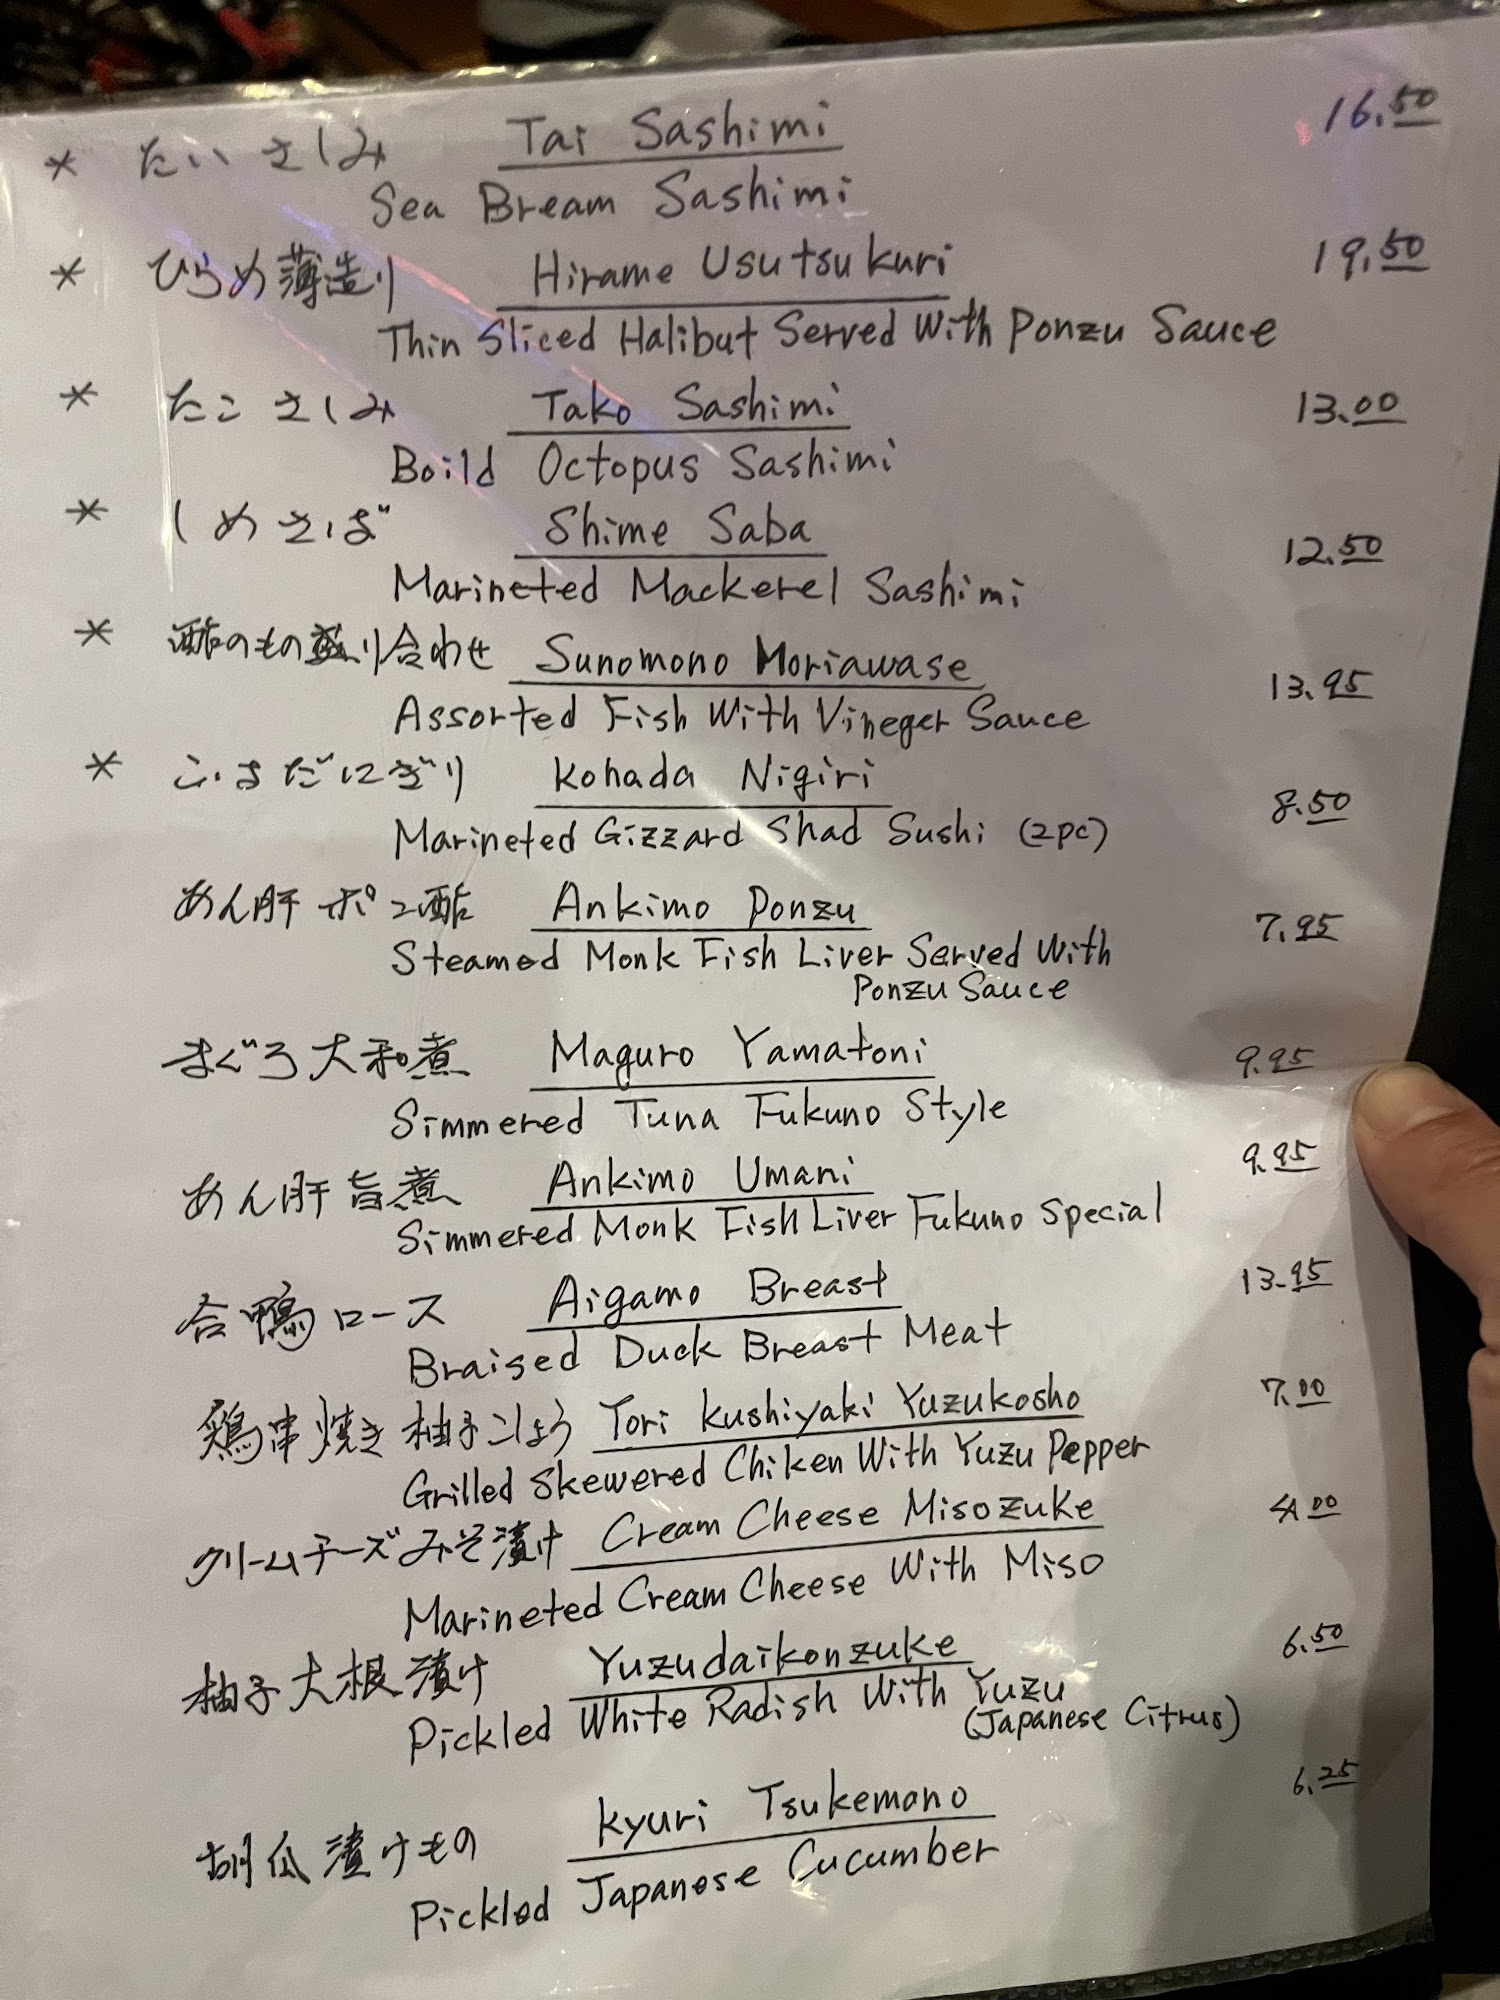 * たい さしみ Tai Sashimi 16.50
Sea Bream Sashimi
* ひらめ薄造り Hirame Usutsukuri 19.50
Thin Sliced Halibut Served With Ponzu Sauce
* たこ さしみ Tako Sashimi 13.00
Boild Octopus Sashimi
* しめさば Shime Saba 12.50
Marineted Mackerel Sashimi
* 酢のもの盛り合わせ Sunomono Moriawase 13.95
Assorted Fish With Vineger Sauce
* こはだにぎり Kohada Nigiri 8.50
Marineted Gizzard Shad Sushi (2pc)
あん肝 ポン酢 Ankimo Ponzu 7.95
Steamed Monk Fish Liver Served With
Ponzu Sauce
まぐろ大和煮 Maguro Yamatoni 9.95
Simmered Tuna Fukuno Style
あん肝旨煮 Ankimo Umani 9.95
Simmered Monk Fish Liver Fukuno Special
合鴨ロース Aigamo Breast 13.95
Braised Duck Breast Meat
鶏串焼き 柚子こしょう Tori Kushiyaki Yuzukosho 7.00
Grilled Skewered Chiken With Yuzu Pepper
クリームチーズみそ漬け Cream Cheese Misozuke 4.00
Marineted Cream Cheese With Miso
柚子大根漬け Yuzudaikonzuke 6.50
Pickled White Radish With Yuzu
(Japanese Citrus)
胡瓜漬けもの Kyuri Tsukemono 6.25
Pickled Japanese Cucumber